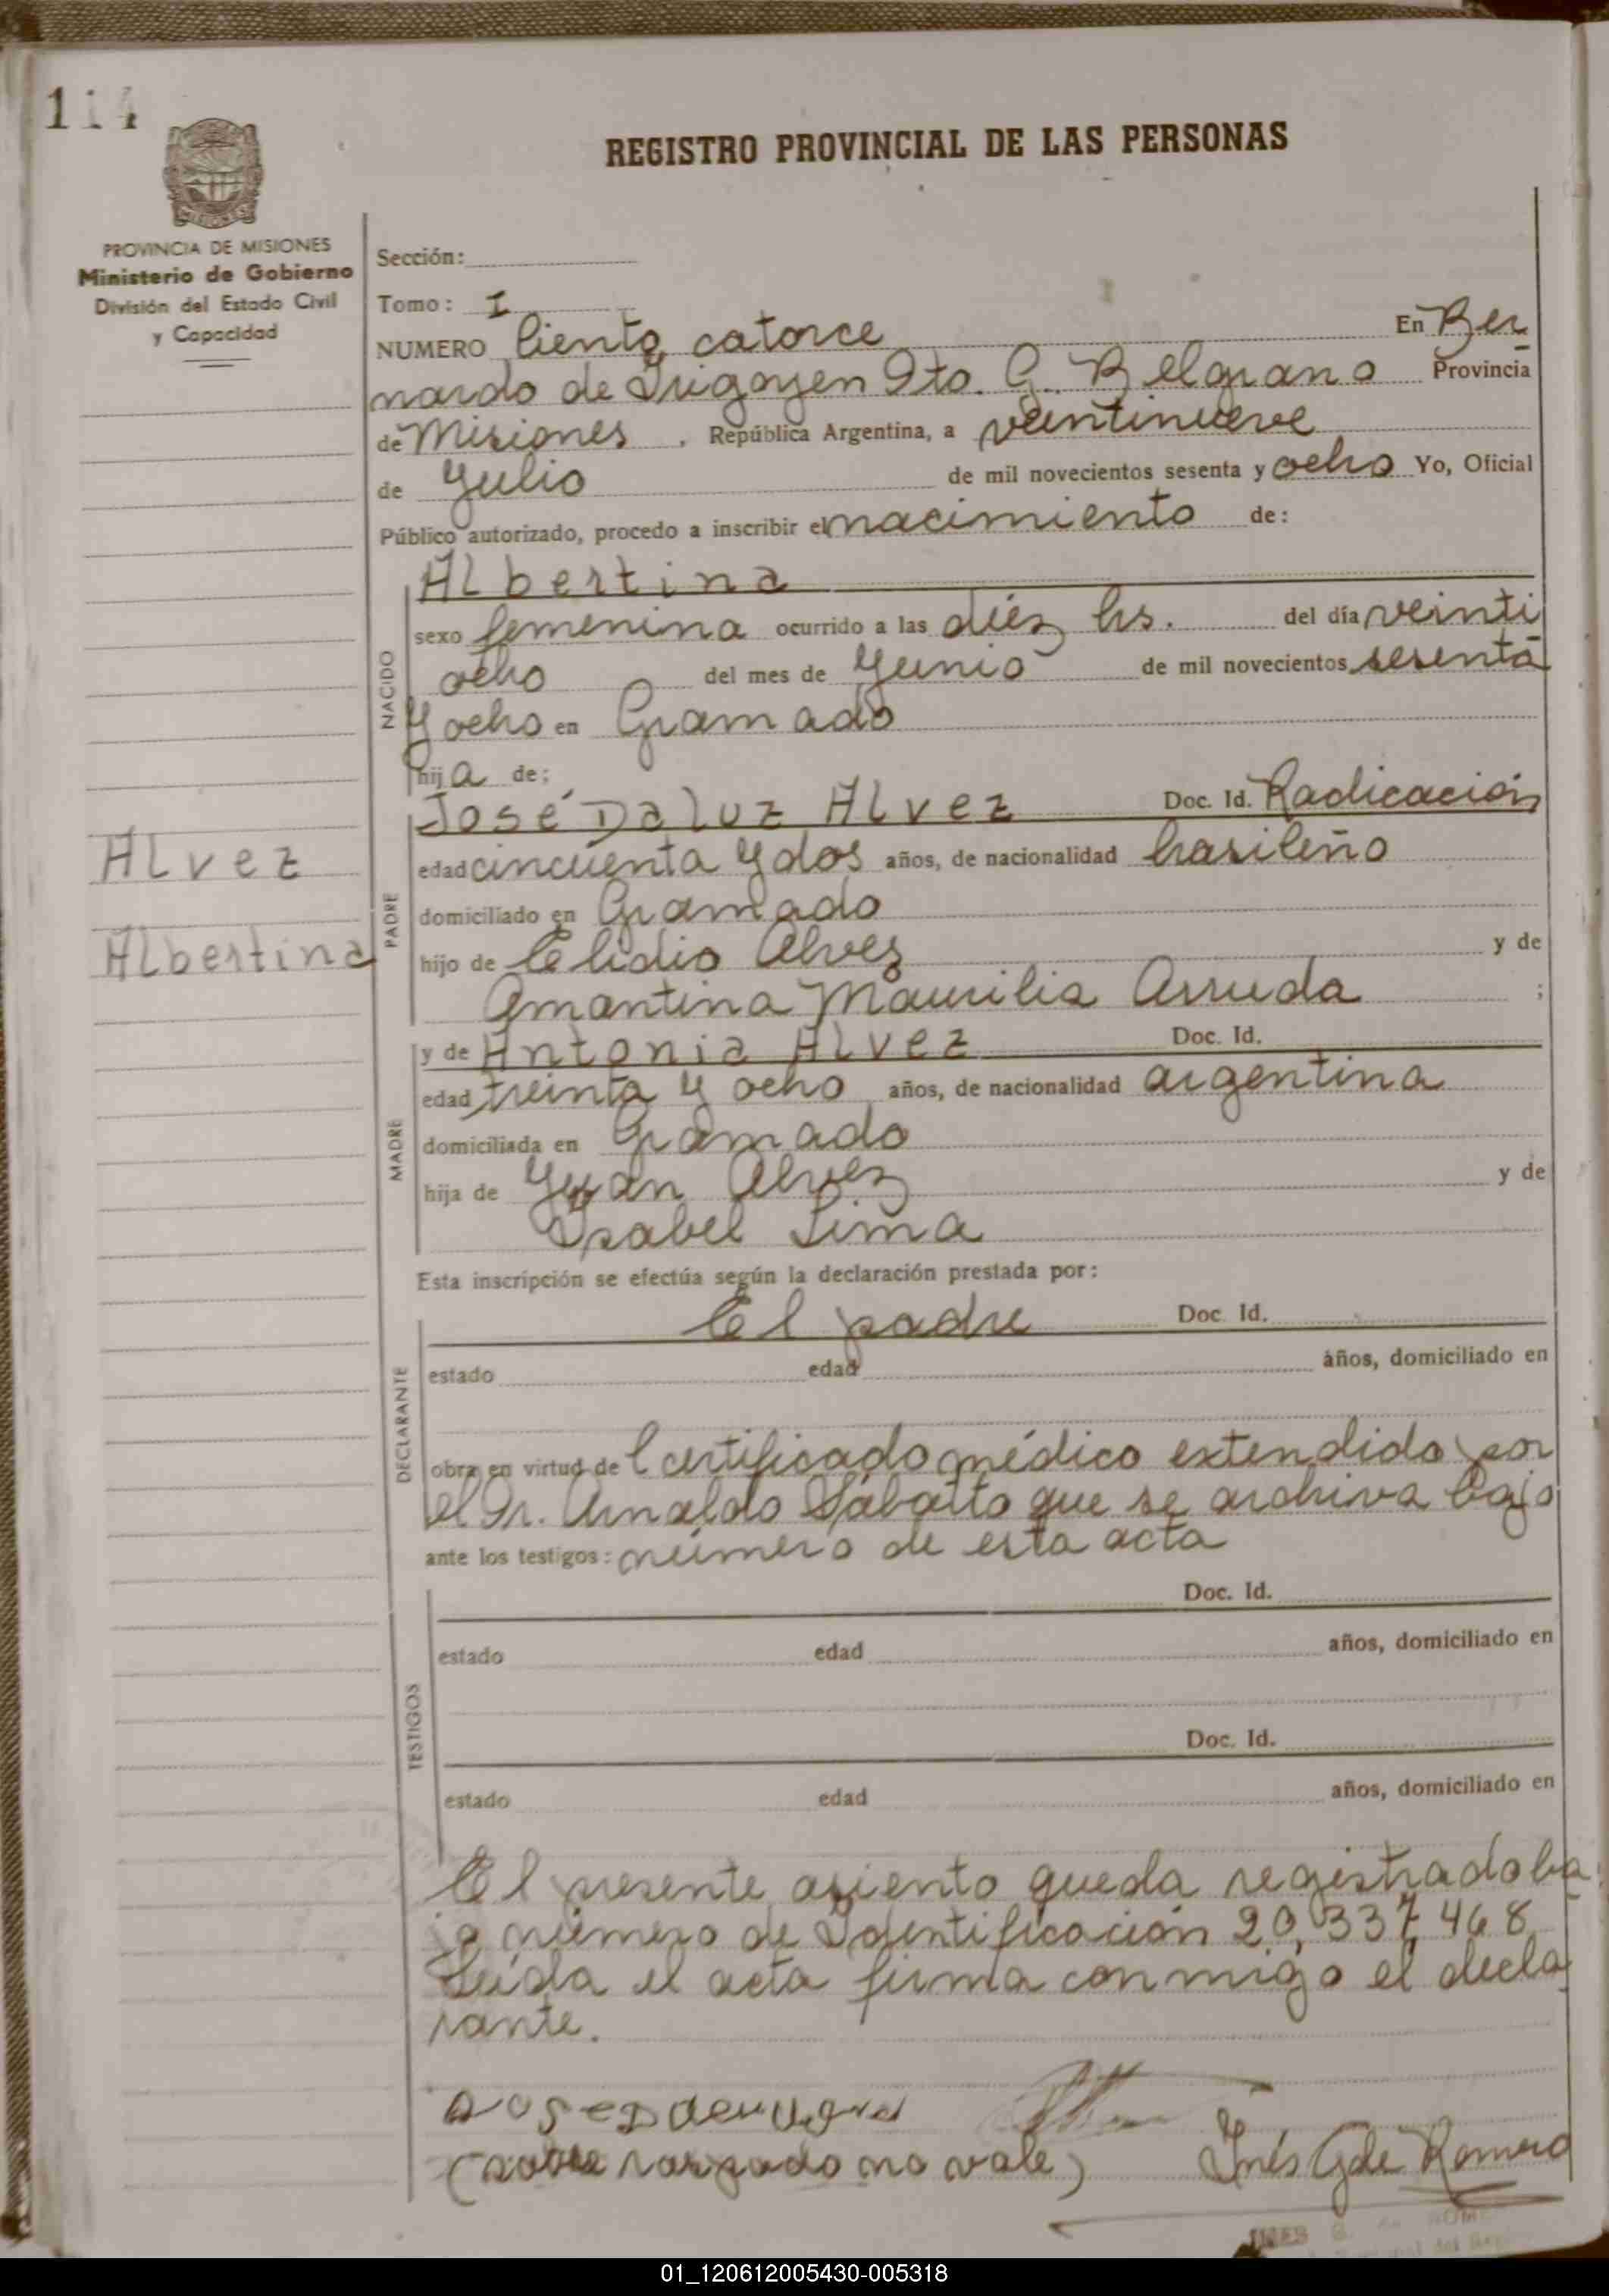 114
REGISTRO PROVINCIAL DE LAS PERSONAS
PROVINCIA DE MISIONES
Ministerio de Gobierno
División del Estado Civil
y Capacidad
Sección:
Tomo: I
NUMERO Ciento catorce En Ber
nardo de Irigoyen Dto. G. Belgrano Provincia
de Misiones, República Argentina, a veintinueve
de Julio de mil novecientos sesenta y ocho Yo, Oficial
Público autorizado, procedo a inscribir el nacimiento de:
NACIDO
Albertina
sexo femenina ocurrido a las diez hs. del día veinti
ocho del mes de Junio de mil novecientos sesenta
y ocho en Gramado
hija de:
Alvez
Albertina
PADRE
José Da luz Alvez Doc. Id. Radicación
edad cincuenta y dos años, de nacionalidad brasileño
domiciliado en Gramado
hijo de Elidio Alvez y de
Amantina Maurilia Arruda ;
MADRE
y de Antonia Alvez Doc. Id.
edad treinta y ocho años, de nacionalidad argentina
domiciliada en Gramado
hija de Juan Alvez y de
Isabel Lima
Esta inscripción se efectúa según la declaración prestada por:
DECLARANTE
El padre Doc. Id.
estado edad años, domiciliado en
obra en virtud del certificado médico extendido por
el Dr. Arnaldo Sabatto que se archiva bajo
ante los testigos: número de esta acta
TESTIGOS
Doc. Id.
estado edad años, domiciliado en
Doc. Id.
estado edad años, domiciliado en
El presente asiento queda registrado ba
jo número de Identificación 20,337,468
Leída el acta firma conmigo el decla
rante.
(sobre raspado no vale) Inés G de Romero
INES G. de ROME
01_120612005430-005318